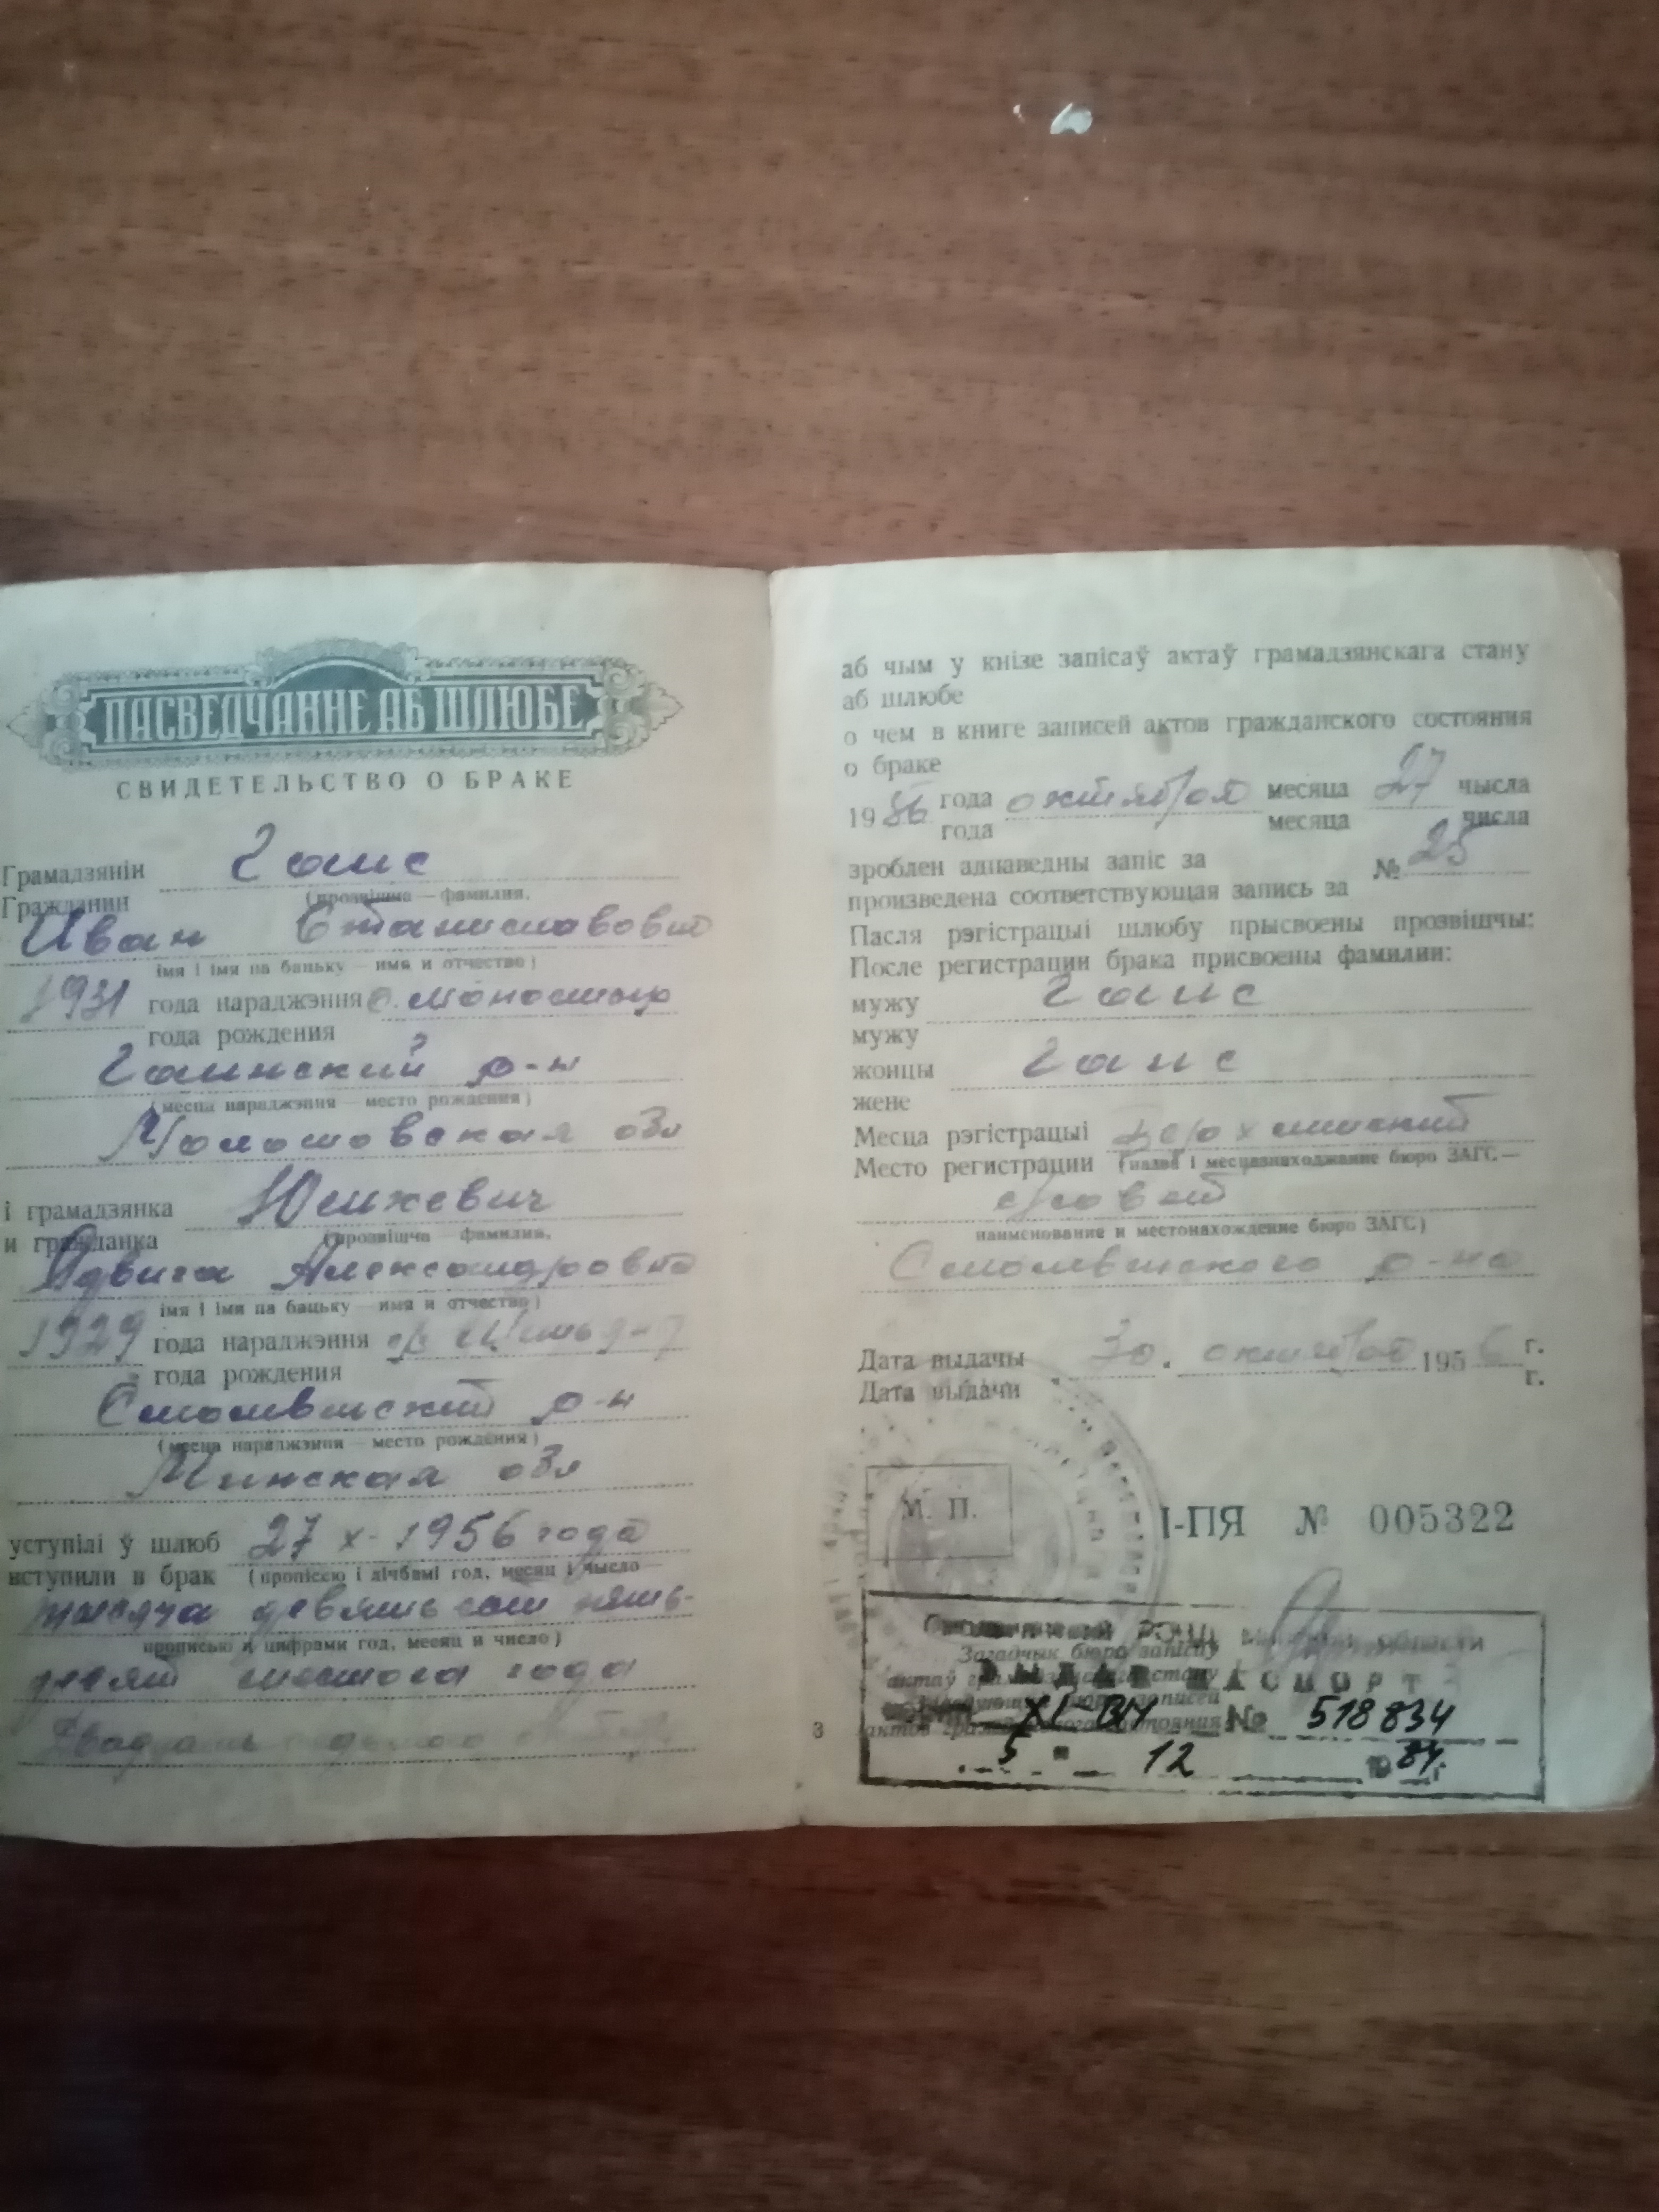 ПАСВЕДЧАННЕ АБ ШЛЮБЕ
СВИДЕТЕЛЬСТВО О БРАКЕ
Грамадзянін Гаис
Гражданин (прозвішча — фамилия,
Иван Станиславович
імя і імя па бацьку — имя и отчество)
1931 года нараджэння с. Монастыр
года рождения
Гаинский р-н
(месца нараджэння — место рождения)
Молотовская обл
і грамадзянка Юшкевич
и гражданка (прозвішча — фамилия,
Ядвига Александровна
імя і імя па бацьку — имя и отчество)
1929 года нараджэння
года рождения
Смолевичский р-н
(месца нараджэння — место рождения)
Минская обл
уступілі ў шлюб 27 X- 1956 года
вступили в брак (пропіссю і лічбамі год, месяц і чысло
тысяча девятьсот пять-
прописью и цифрами год, месяц и число)
десят шестого года
Двадцать седьмого октября
аб чым у кнізе запісаў актаў грамадзянскага стану
аб шлюбе
о чем в книге записей актов гражданского состояния
о браке
1956 года октября месяца 27 чысла
года месяца числа
зроблен адпаведны запіс за № 25
произведена соответствующая запись за
Пасля рэгістрацыі шлюбу прысвоены прозвішчы:
После регистрации брака присвоены фамилии:
мужу Гаис
мужу
жонцы Гаис
жене
Месца рэгістрацыі
Место регистрации (назва і месцазнаходжанне бюро ЗАГС —
совет
наименование и местонахождение бюро ЗАГС)
Смолевичского р-на
Дата выдачы 30. октября 1956 г.
Дата выдачи г.
М. П.
I-ПЯ № 005322
Загадчык бюро запісаў
актаў грамадзянскага стану
Заведующий бюро записей
актов гражданского состояния
РОВД Минской области
ВЫДАН ПАСПОРТ
XI-ВМ № 518834
5 " 12 1984 г.
3